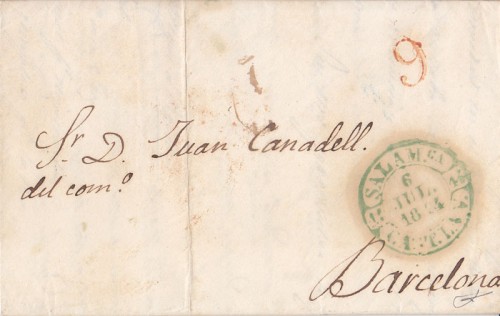 9
Sr. D. Juan Canadell.
del com.o
SALAMCA
6
JUL.
Barcelona